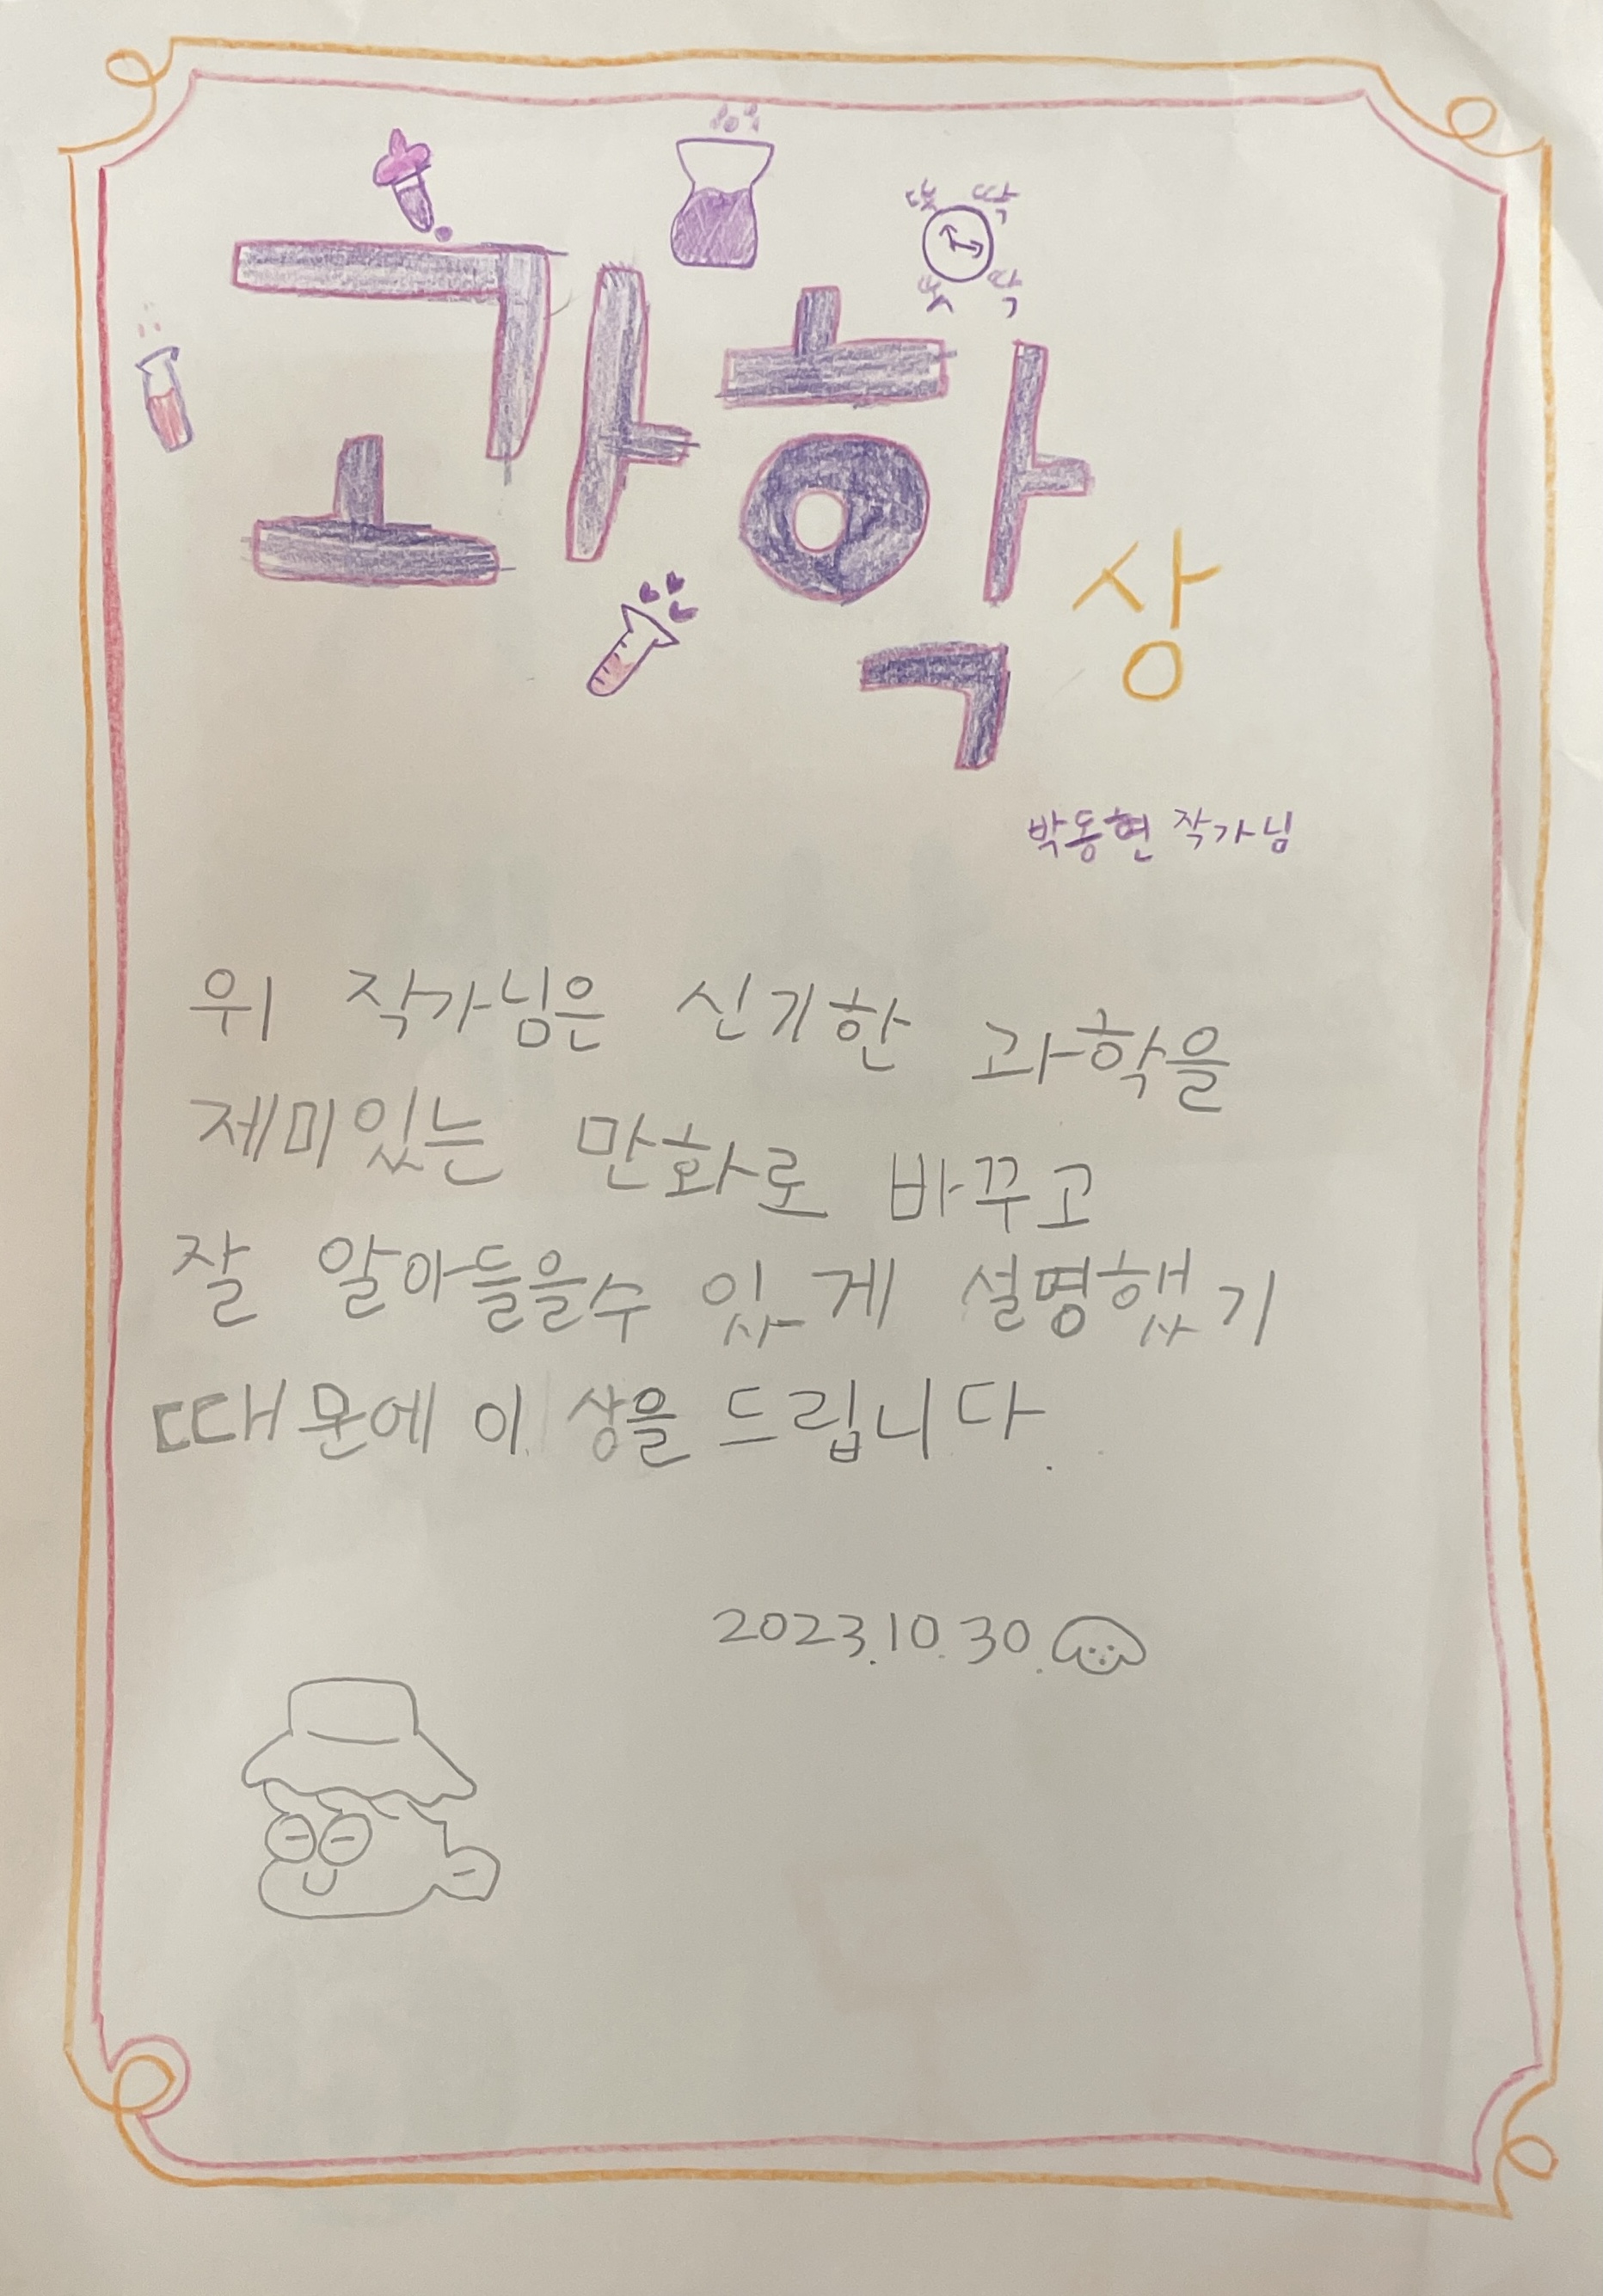 똑 딱
똑 딱
과학상
박동현 작가님
위 작가님은 신기한 과학을
제미있는 만화로 바꾸고
잘 알아들을수 있게 설명했기
때문에 이 상을 드립니다.
2023.10.30.